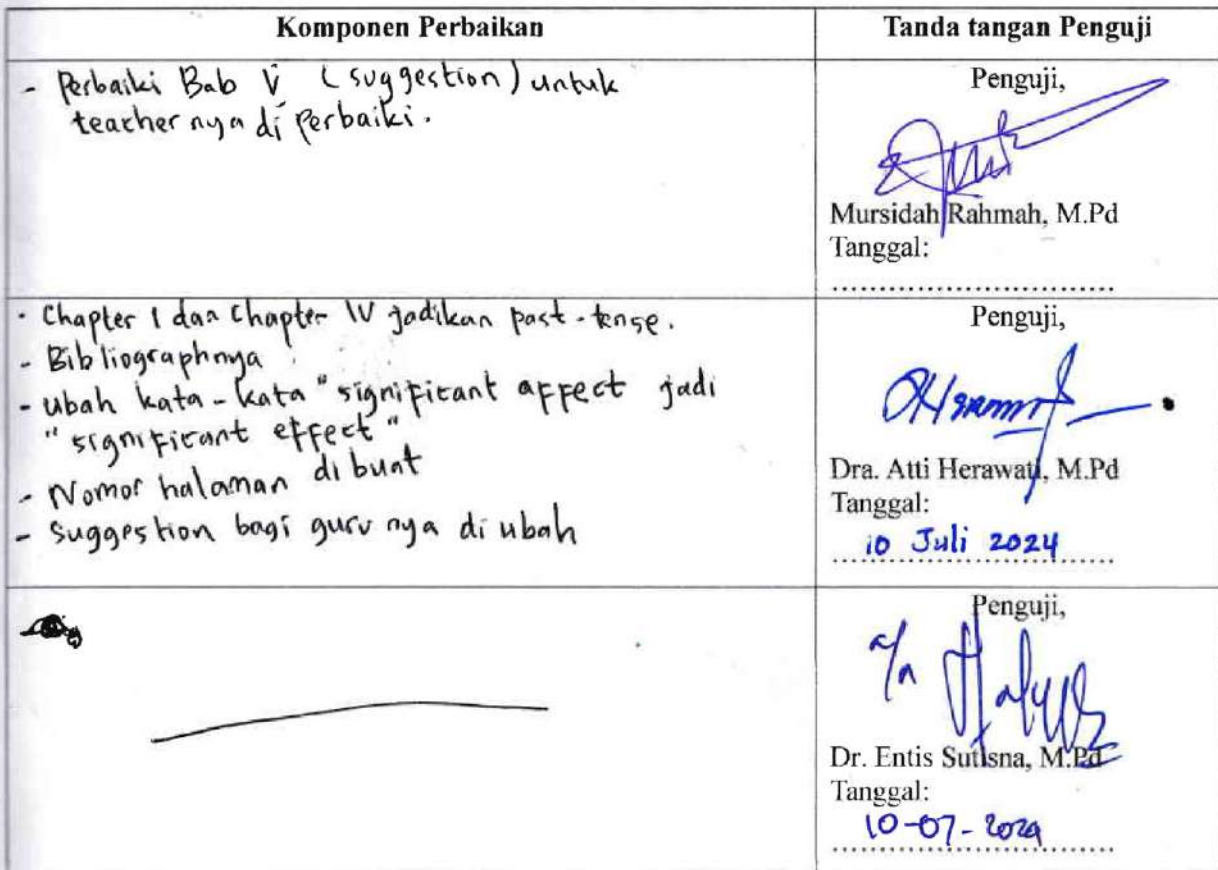 Komponen Perbaikan
Tanda tangan Penguji
- Perbaiki Bab V (suggestion) untuk
teacher nya di perbaiki.
Penguji,
Mursidah Rahmah, M.Pd
Tanggal:
- Chapter 1 dan Chapter IV jadikan past-tense.
- Bibliographnya
- Ubah kata-kata "significant affect jadi
"significant effect"
- Nomor halaman di buat
- Suggestion bagi guru nya di ubah
Penguji,
Dra. Atti Herawati, M.Pd
Tanggal:
10 Juli 2024
Penguji,
a/n
Dr. Entis Sutisna, M.Pd
Tanggal:
10-07-2024